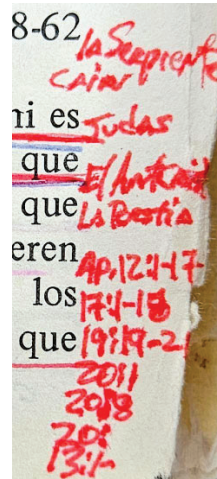 8-62
la Serpiente
Cain
ni es Judas
que El Antecrist
que La Bestia
eren Ap.12:1-17-
los 17:1-18
que 19:19-21
20:11
20:8
20:
13:1-